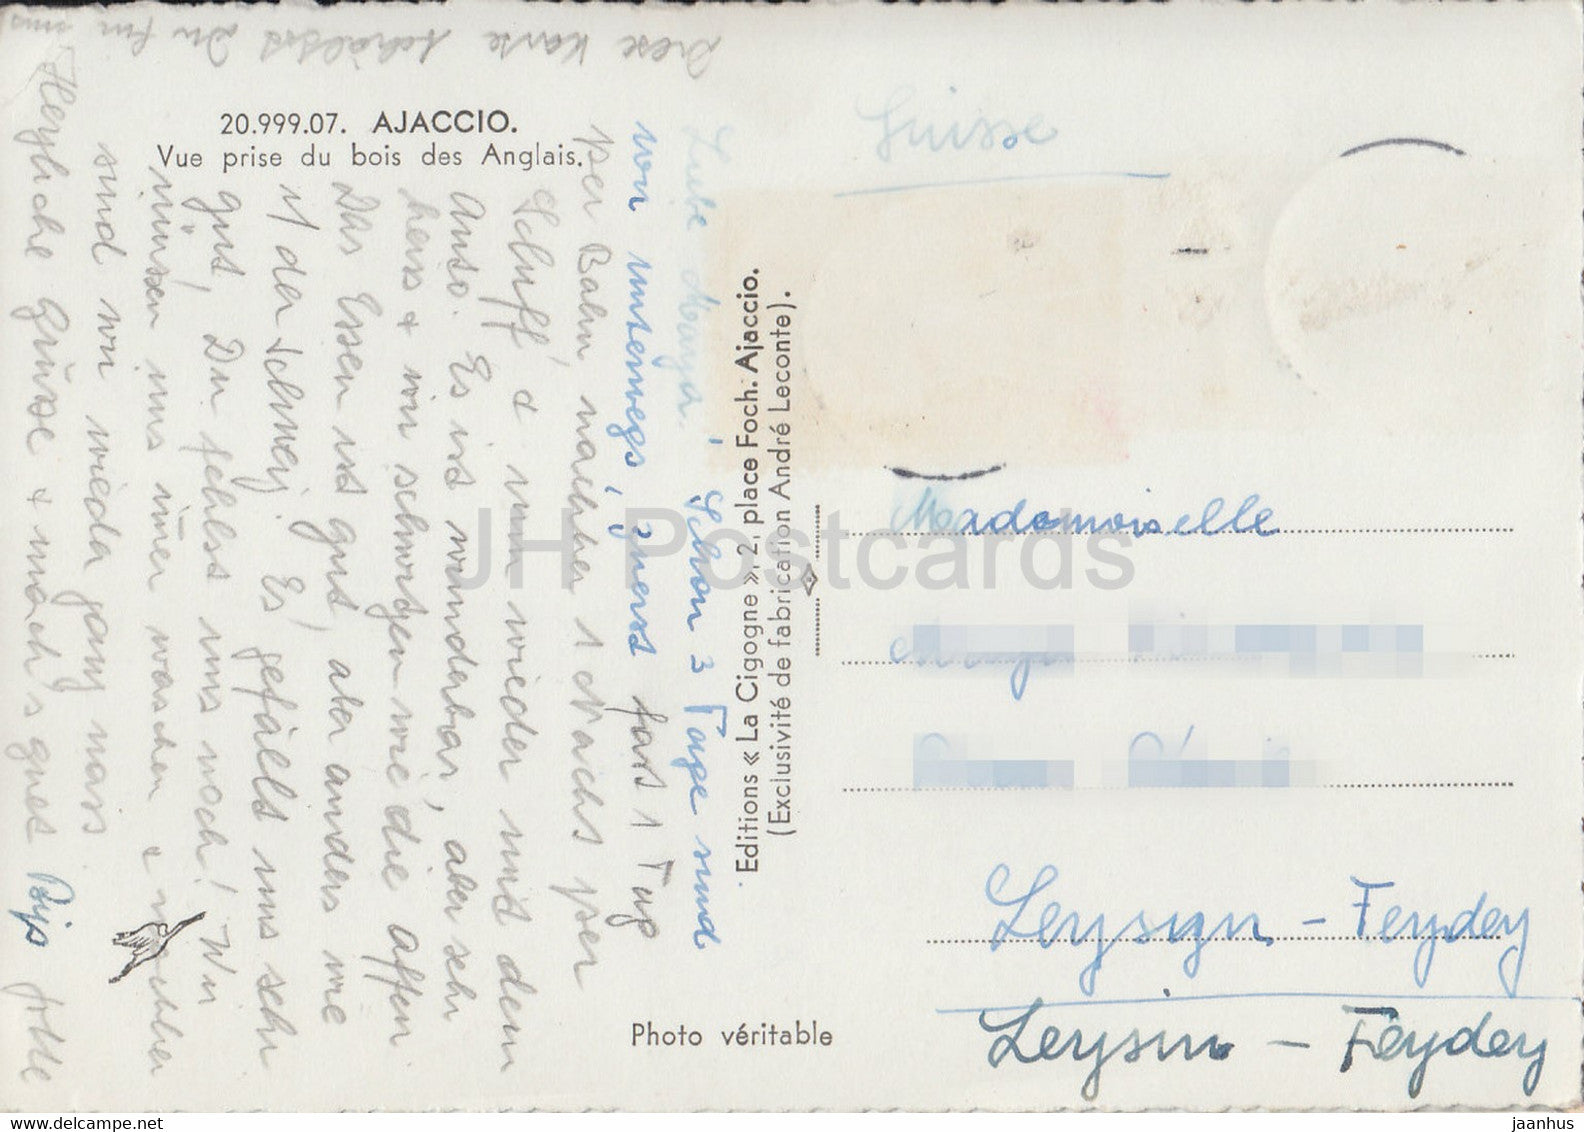 20.999.07. AJACCIO.
Vue prise du bois des Anglais.
Suisse
Diese Karte schickst Du
Liebe Maya! Schon 3 Tage sind
wir unterwegs, zuerst fast 1 Tag
per Bahn nachher 1 Nacht per
Schiff & nun wieder mit dem
Auto. Es ist wunderbar, aber sehr
heiss & wir schwitzen wie die Affen.
Das Essen ist gut, aber anders wie
i/ der Schweiz. Es gefällt uns sehr
gut, Du fehlst uns noch! Wir
müssen uns imer waschen & nachher
sind wir wieder ganz nass
Herzliche Grüsse & mach's gut
Editions « La Cigogne », 2, place Foch. Ajaccio.
(Exclusivité de fabrication André Leconte).
Mademoiselle
Leysign - Feydey
Leysin - Feydey
Photo véritable
JH Postcards
jaanhus.ecrater.com
jaanhus